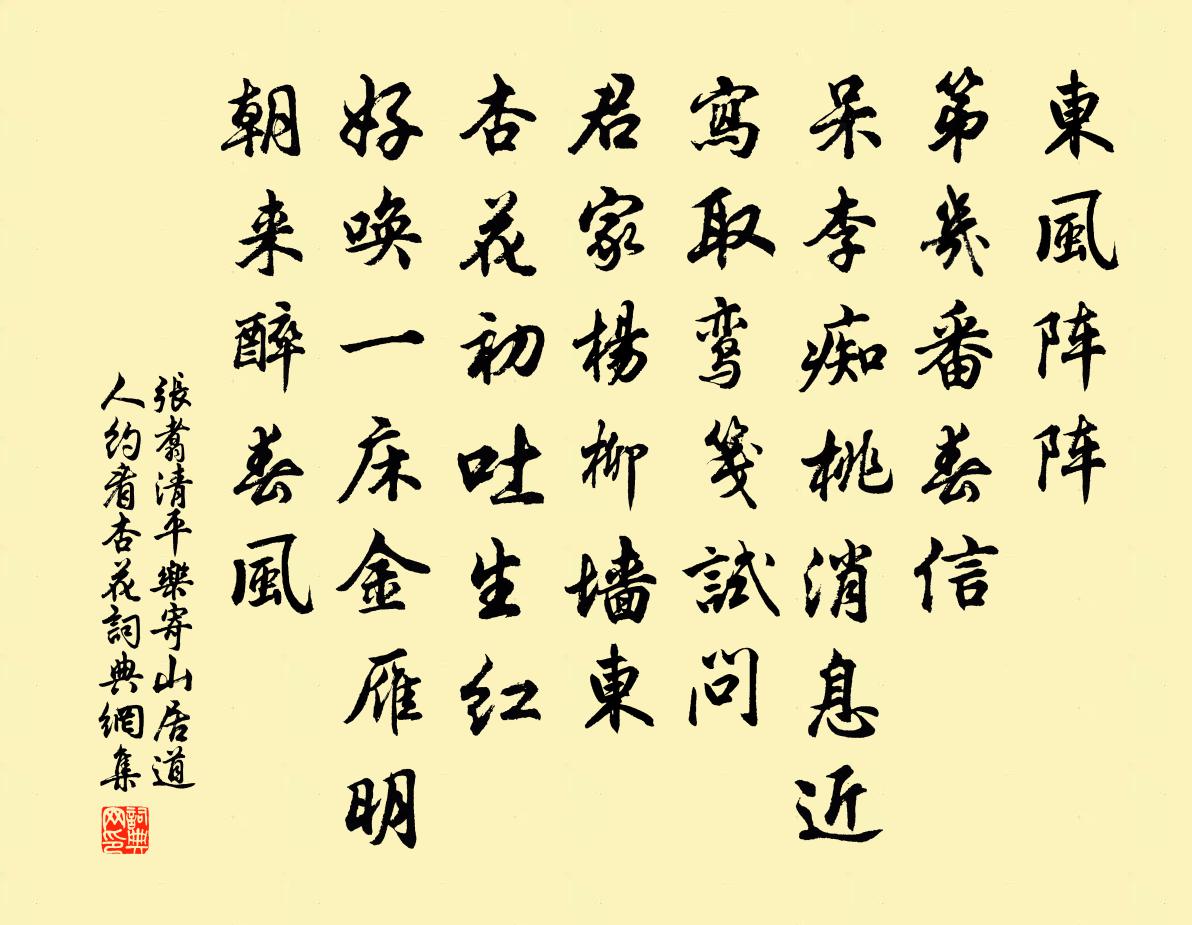 東風阵阵
第幾番春信
呆李痴桃消息近
寫取鸾箋試問
君家楊柳墻東
杏花初吐生红
好唤一床金雁明
朝来醉春風
張翥清平樂寄山居道
人約看杏花詞典網集
詞典
网印